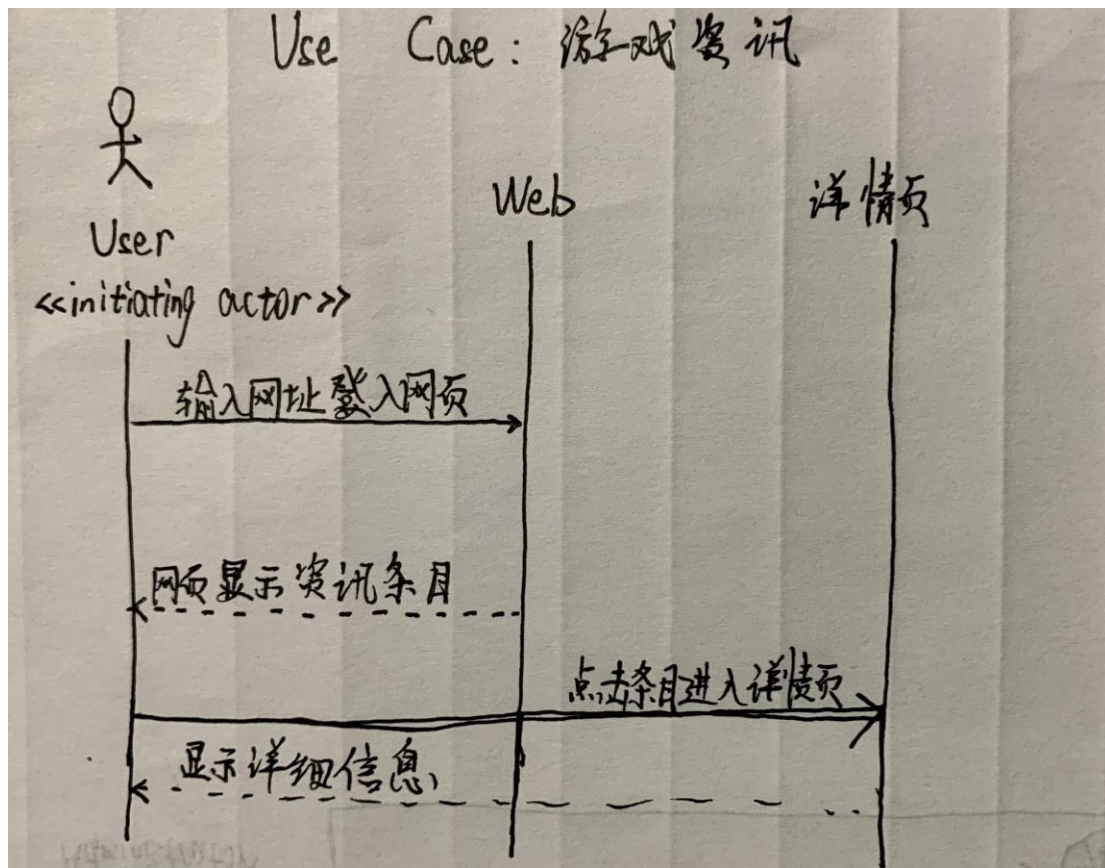 Use Case: 游戏资讯
User
Web
详情页
<<initiating actor>>
输入网址登入网页
网页显示资讯条目
点击条目进入详情页
显示详细信息